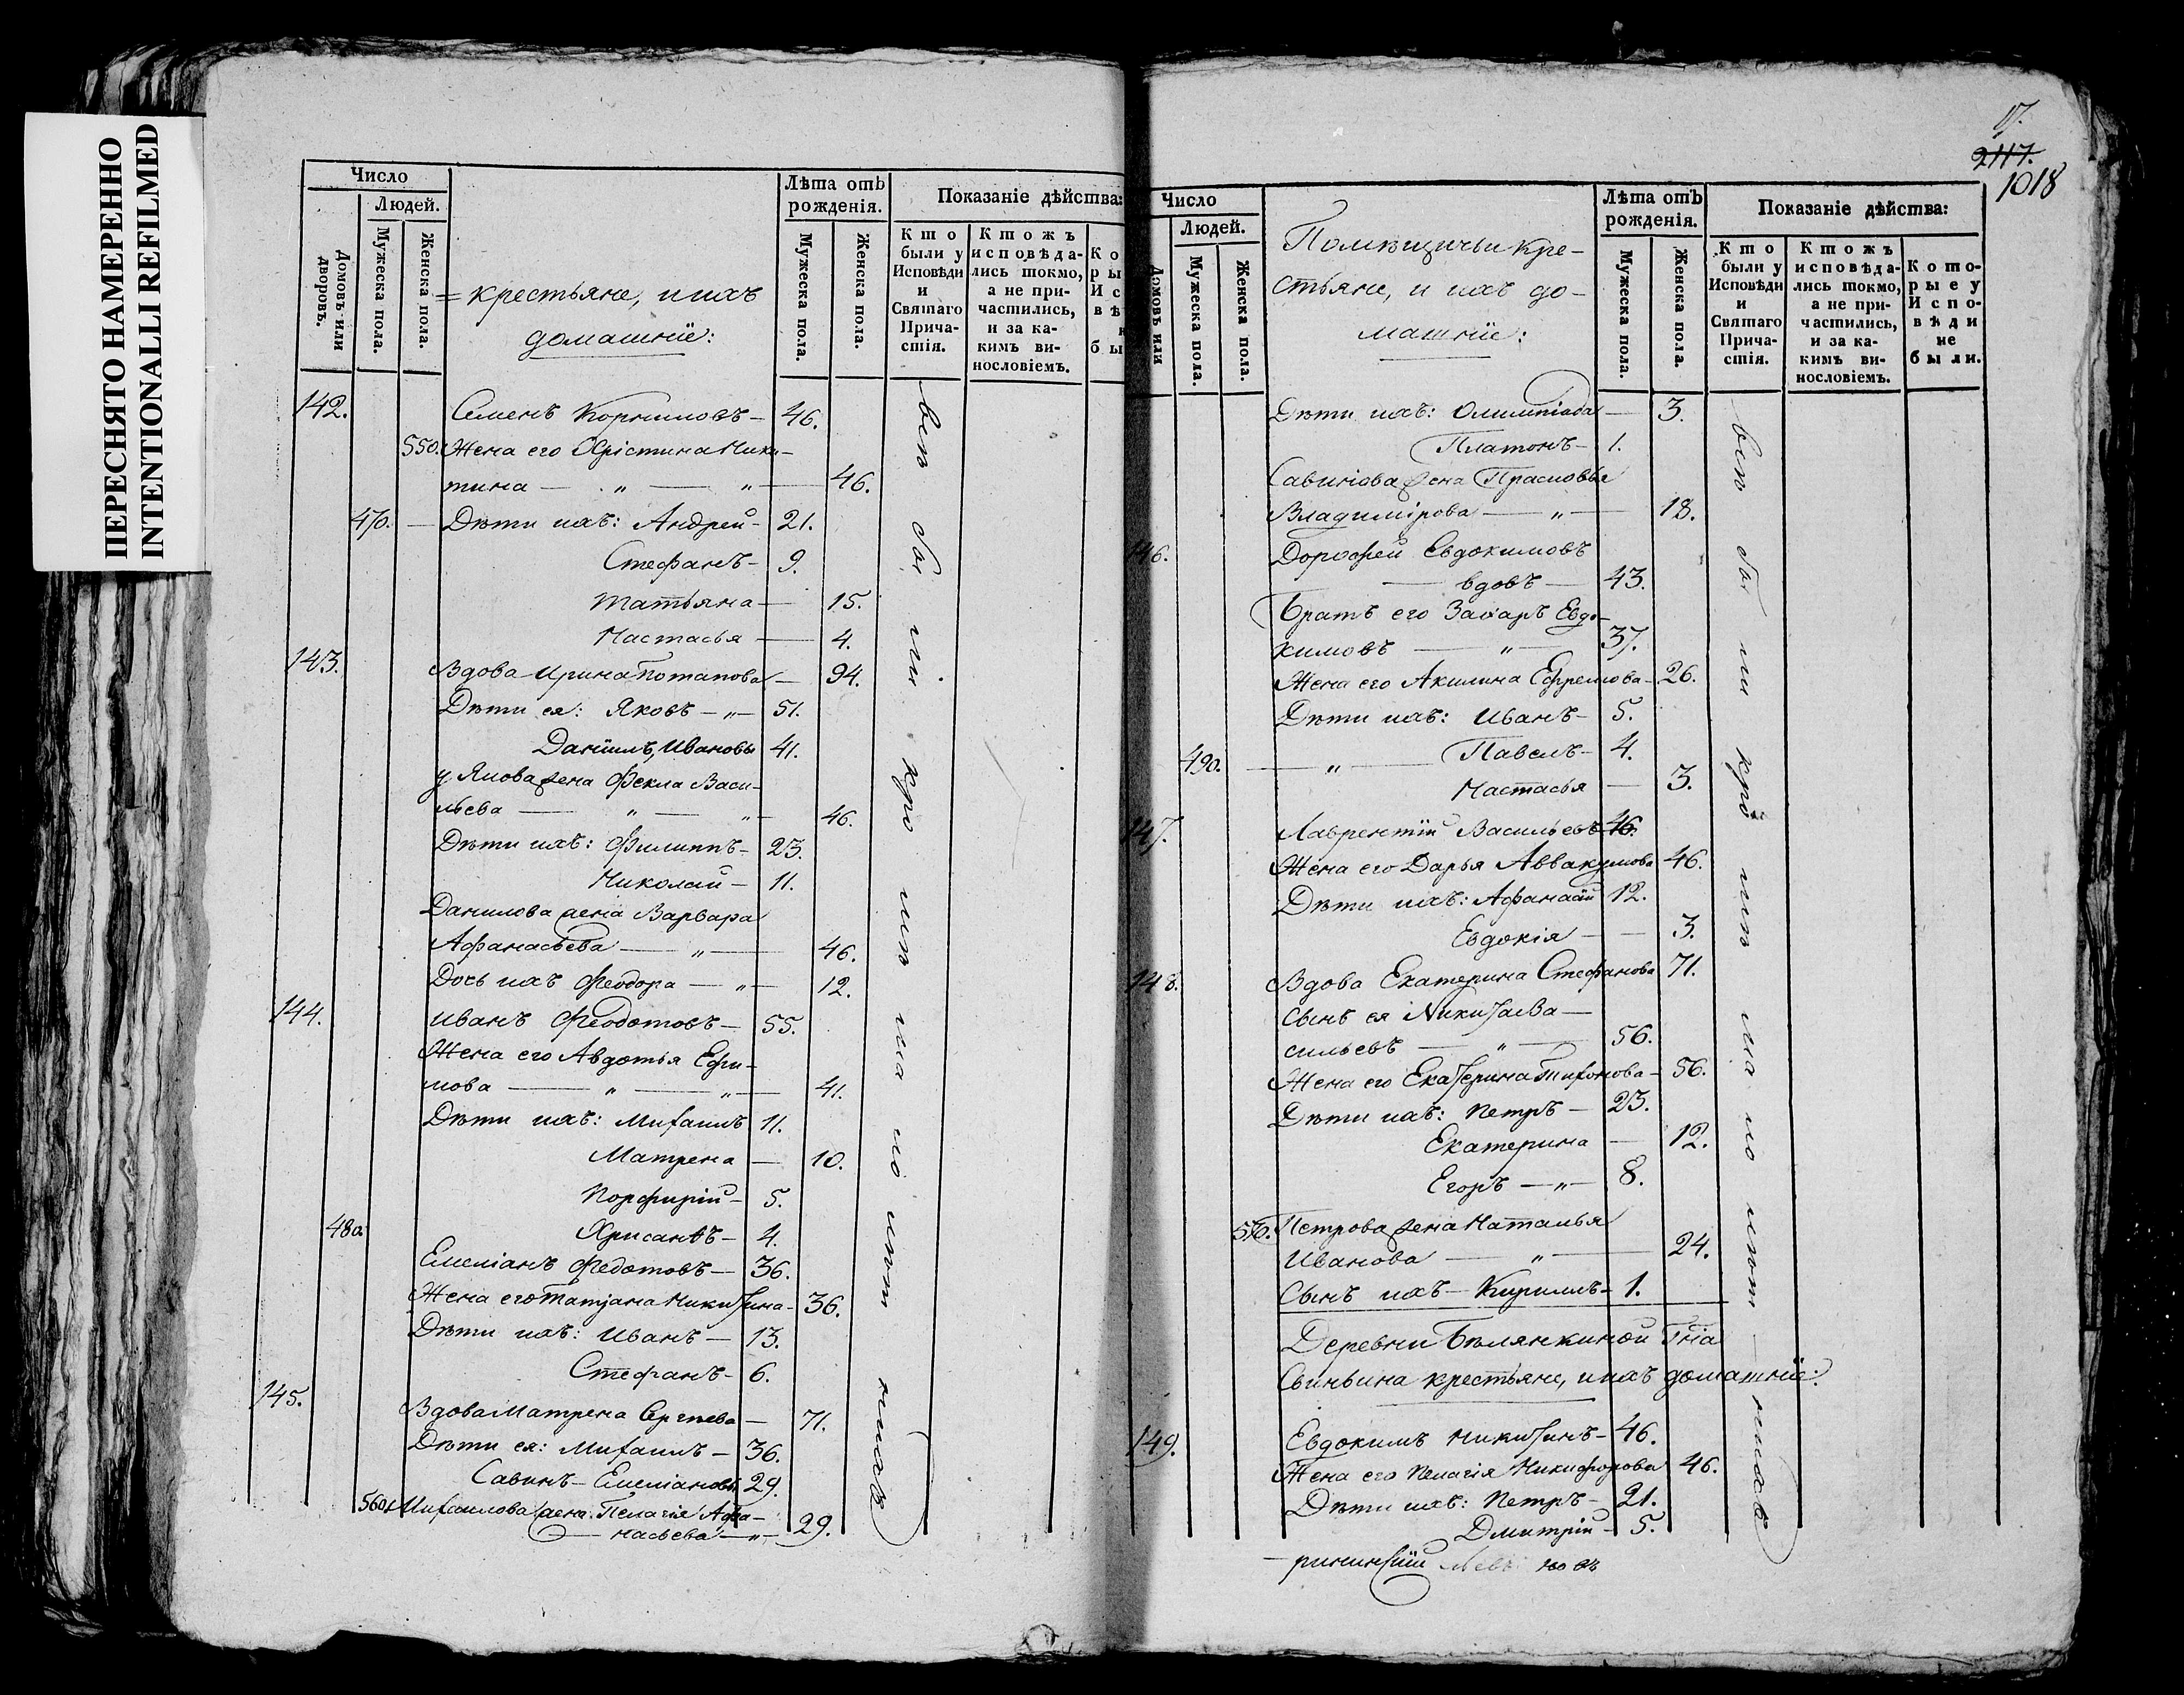 ПЕРЕСНЯТО НАМЕРЕННО
INTENTIONALLI REFILMED
Число
Людей.
Домовъ или дворовъ.
Мужеска пола.
Женска пола.
= крестьяне, и ихъ
домашнїе:
Лѣта отъ рожденія.
Мужеска пола.
Женска пола.
Показаніе дѣйства:
Кто были у Исповѣди и Святаго Причастія.
Ктожъ исповѣдались токмо, а не причастились, и за какимъ винословіемъ.
142. Семенъ Корниловъ — 46.
550. Жена его Хрістина Ники-
тина — „ — „ — 46.
470. — Дѣти ихъ: Андрей - 21.
Стефанъ - 9.
Татьяна — 15.
Настасья — 4.
143. Вдова Ирина Потапова — 94.
Дѣти ея: Яковъ — „ — 51.
Данїилъ, Ивановы 41.
у Якова жена Фекла Васи-
льева — „ — „ — 46.
Дѣти ихъ: Филиппъ - 23.
Николай - 11.
Данилова жена Варвара
Афанасьева — „ — 46.
Дочь ихъ Феодора — „ — 12.
144. Иванъ Феодотовъ — 55.
Жена его Авдотья Ефи-
мова — „ — „ — 41.
Дѣти ихъ: Михаилъ 11.
Матрена — 10.
Порфирій - 5.
480. Хрисанѳъ - 4.
Емеліанъ Федотовъ — 36.
Жена его Татіана Никитина - 36.
Дѣти ихъ: Иванъ — 13.
Стефанъ - 6.
145. Вдова Матрена Сергѣева — 71.
Дѣти ея: Михаилъ — 36.
Савинъ - Емеліановы 29.
560. Михаилова жена Пелагія Афа-
насьева — „ — 29.
всѣ
17.
2117.
1018
Число
Людей.
Домовъ или
Мужеска пола.
Женска пола.
Помѣщичьи кре-
стьяне, и ихъ до-
машнїе:
Лѣта отъ рожденія.
Мужеска пола.
Женска пола.
Показаніе дѣйства:
Кто были у Исповѣди и Святаго Причастія.
Ктожъ исповѣдались токмо, а не причастились, и за какимъ винословіемъ.
Которые у Исповѣди не были.
Дѣти ихъ: Олимпіада — 3.
Платонъ — 1.
Савинова жена Прасковья
Владимірова — „ — 18.
146. Дорофей Евдокимовъ
— вдовъ — 43.
Братъ его Захаръ Евдо-
кимовъ — „ — 37.
Жена его Акилина Ефремова - 26.
Дѣти ихъ: Иванъ - 5.
490. — „ — Павелъ - 4.
Настасья — 3.
147. Лаврентїй Васильевъ 46.
Жена его Дарья Аввакумова 46.
Дѣти ихъ: Афанасїй 12.
Евдокія — 3.
148. Вдова Екатерина Стефанова 71.
Сынъ ея Никита Ва-
сильевъ — „ — 56.
Жена его Екатерина Тихонова - 56.
Дѣти ихъ: Петръ — 23.
Екатерина — 12.
Егоръ — „ — 8.
Петрова жена Наталья
Иванова — „ — 24.
Сынъ ихъ - Кириллъ - 1.
Деревни Бѣлянкиной Гна
Свиньина крестьяне, и ихъ домашнїе:
149. Евдокимъ Никитинъ - 46.
Жена его Пелагія Никифорова 46.
Дѣти ихъ: Петръ - 21.
Дмитрїй - 5.
всѣ